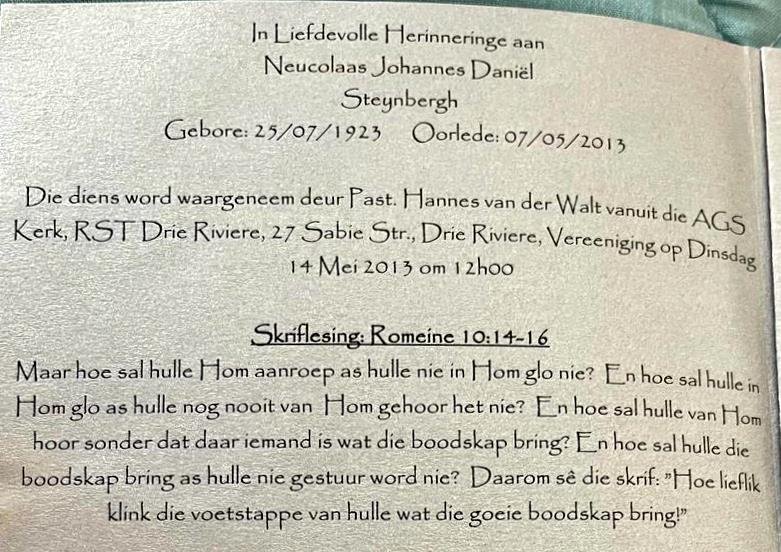 In Liefdevolle Herinneringe aan
Neucolaas Johannes Daniël
Steynbergh
Gebore: 25/07/1923 Oorlede: 07/05/2013
Die diens word waargeneem deur Past. Hannes van der Walt vanuit die AGS
Kerk, RST Drie Riviere, 27 Sabie Str., Drie Riviere, Vereeniging op Dinsdag
14 Mei 2013 om 12h00
Skriflesing: Romeine 10:14-16
Maar hoe sal hulle Hom aanroep as hulle nie in Hom glo nie? En hoe sal hulle in
Hom glo as hulle nog nooit van Hom gehoor het nie? En hoe sal hulle van Hom
hoor sonder dat daar iemand is wat die boodskap bring? En hoe sal hulle die
boodskap bring as hulle nie gestuur word nie? Daarom sê die skrif: "Hoe lieflik
klink die voetstappe van hulle wat die goeie boodskap bring!"